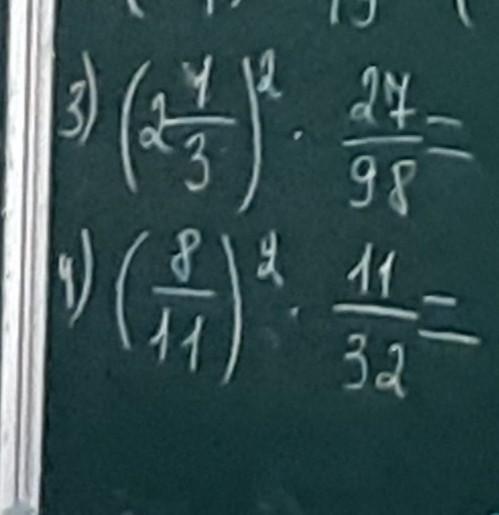 3) (2 1/3)² · 27/98 =
4) (8/11)² · 11/32 =